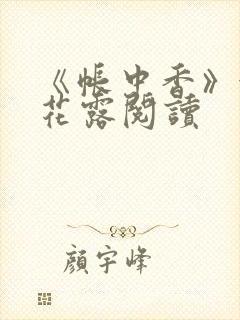 《帳中香》
花露閱讀
顏宇峰